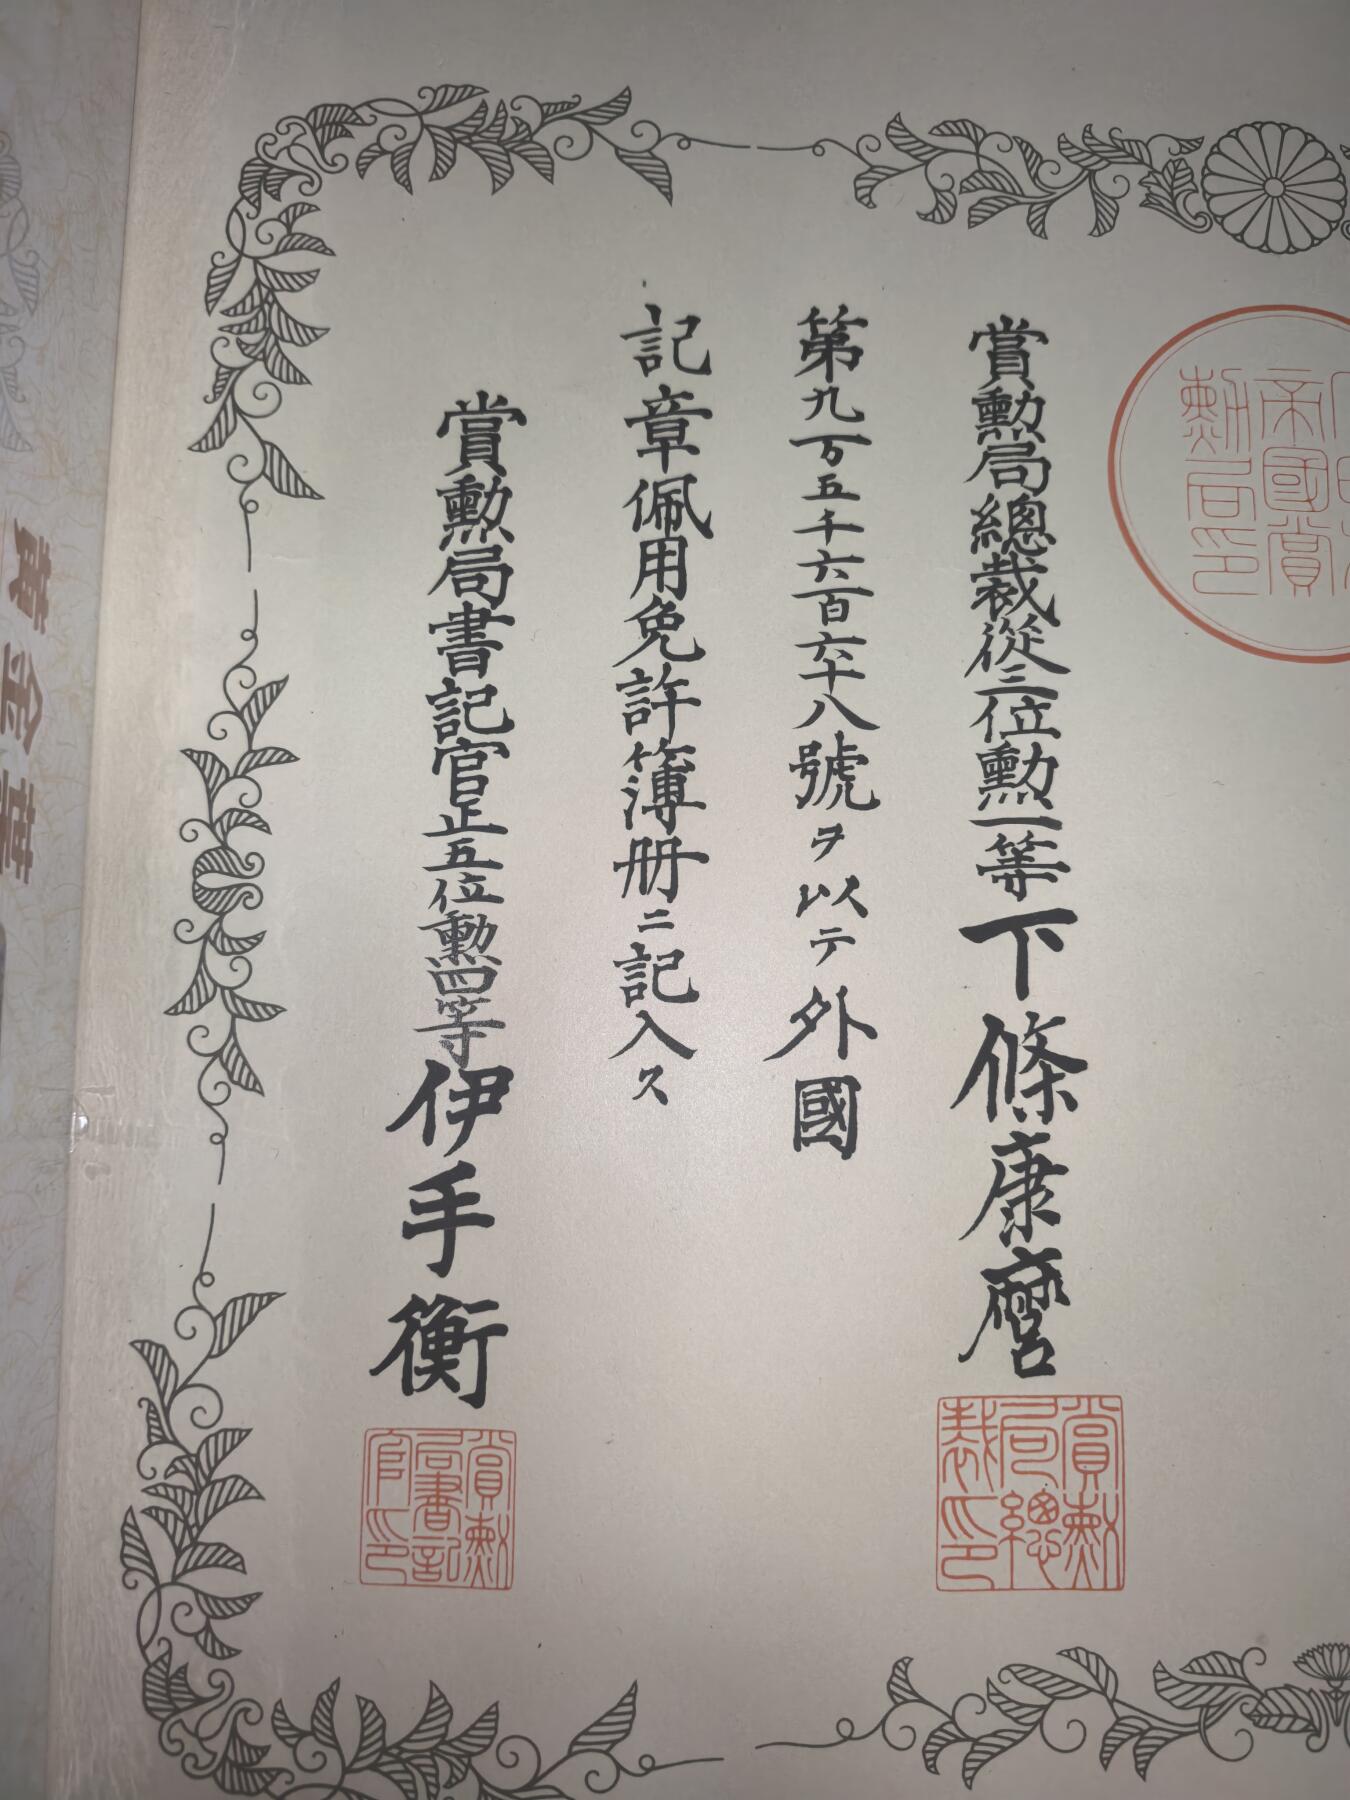 賞勲局總裁從三位勲一等下條康麿
第九万五千六百六十八號ヲ以テ外國
記章佩用免許簿册ニ記入ス
賞勲局書記官正五位勲四等伊手衡
帝國賞
勲局印
賞勲
局總
裁印
賞勲
局書記
官印
黄金葉